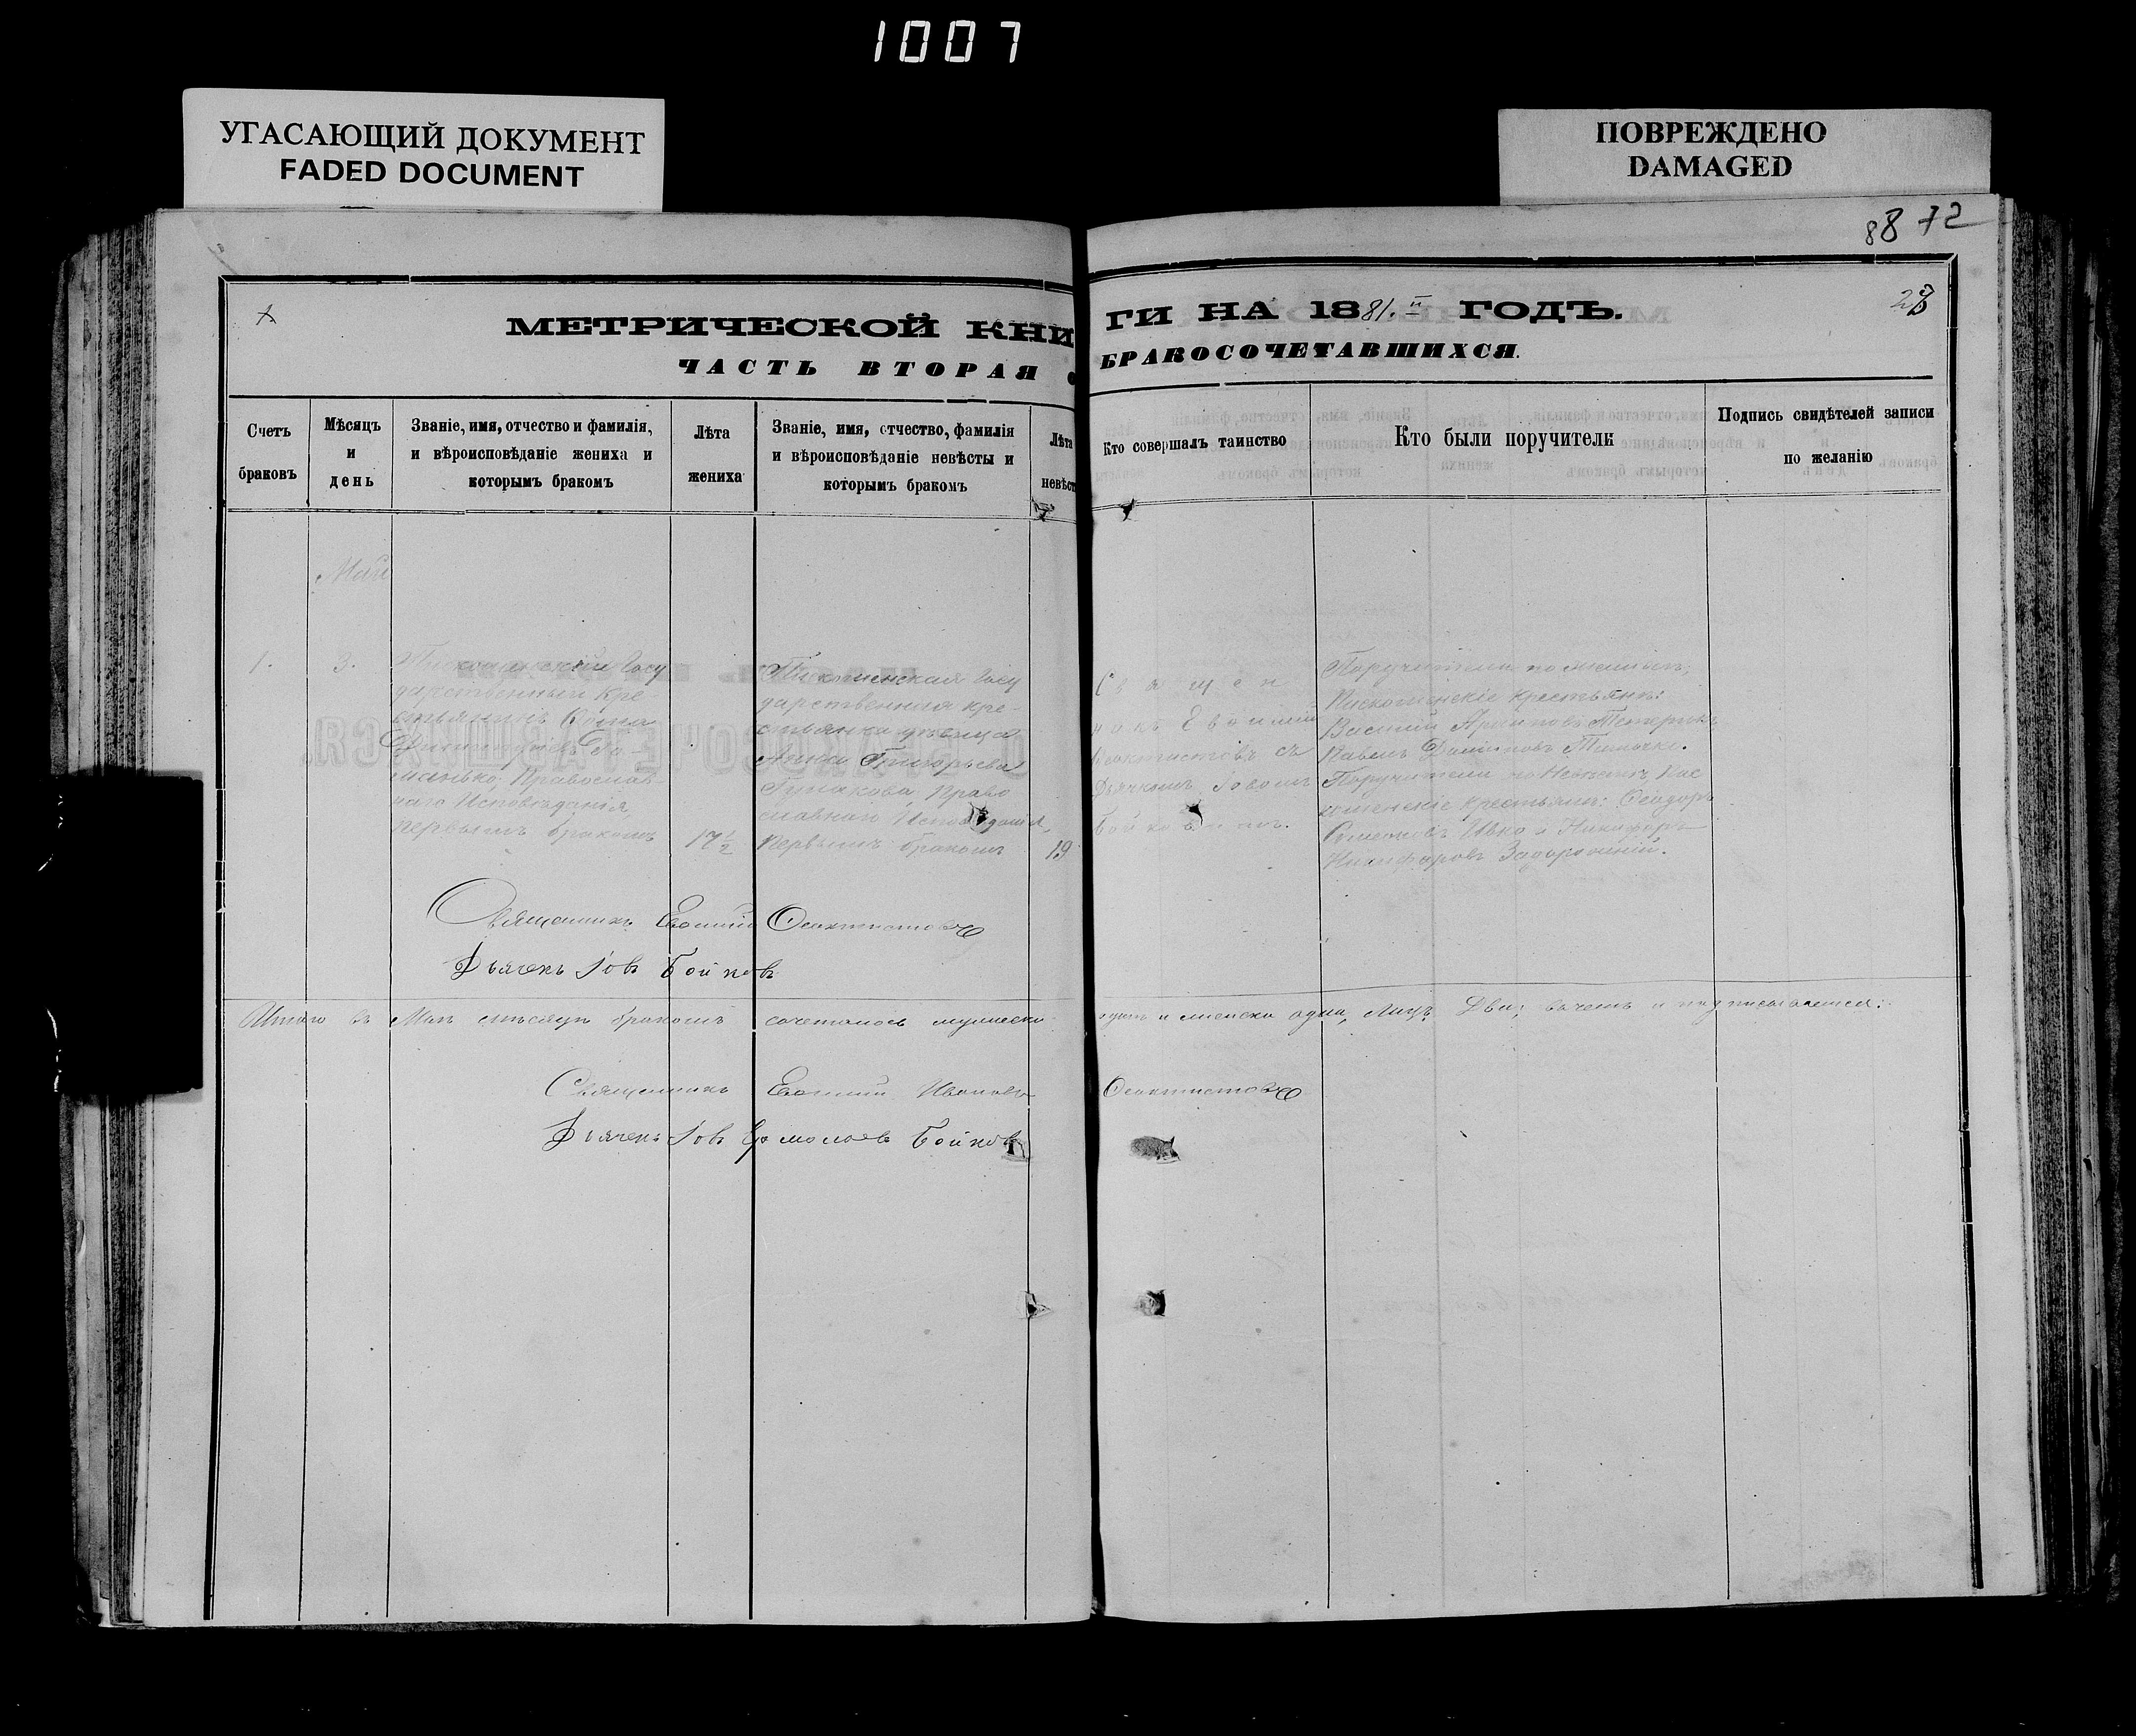 1007
УГАСАЮЩИЙ ДОКУМЕНТ
FADED DOCUMENT
ПОВРЕЖДЕНО
DAMAGED
88 72
МЕТРИЧЕСКОЙ КНИГИ НА 1881.й ГОДЪ.
ЧАСТЬ ВТОРАЯ О БРАКОСОЧЕТАВШИХСЯ.
Счетъ
браковъ
Мѣсяцъ
и
день
Званіе, имя, отчество и фамилія,
и вѣроисповѣданіе жениха и
которымъ бракомъ
Лѣта
жениха
Званіе, имя, отчество, фамилія
и вѣроисповѣданіе невѣсты и
которымъ бракомъ
Лѣта
невѣст
Кто совершалъ таинство
Кто были поручители
Подпись свидѣтелей записи
по желанію
Май
1.
3.
Госу
дарственный кре
стьянинъ
манько, Православ
наго Исповѣданія,
первымъ бракомъ
17 1/2
Госу
дарственная кре-
стьянка дѣвица
Анна Григорьева
Право
славнаго Исповѣданія,
первымъ бракомъ
19
Священ
никъ Евөимій
Өеоктистовъ съ
Дьячкомъ Іовомъ
Бойковымъ.
Поручители по женихѣ;
крестьяне:
Василій
Павелъ
Поручители по Невѣстѣ,
крестьяне: Өеодоръ
и Никифоръ
Никифоровъ Задорожній.
Священникъ Евөимій Өеоктистовъ
Дьячекъ Іовъ Бойковъ
Итого въ Маѣ мѣсяцѣ бракомъ сочеталось мужеска одинъ и женска одна, Лицъ Два; въ чемъ и подписываемся:
Священникъ Евөимій Ивановъ Өеоктистовъ
Дьячекъ Іовъ Ермолаевъ Бойковъ